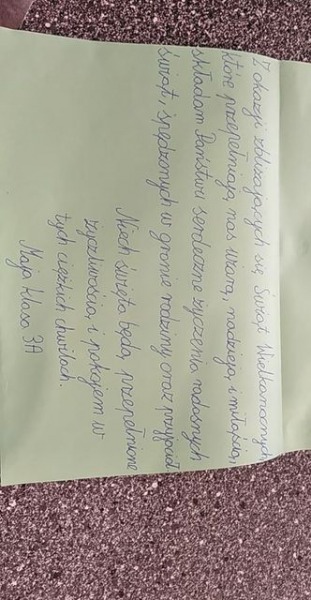 Z okazji zbliżających się Świąt Wielkanocnych
które przepełniają nas wiarą, nadzieją i miłością,
składam Państwu serdeczne życzenia radosnych
świąt, spędzonych w gronie rodziny oraz przyjaciół
Niech święta będą przepełnione
życzliwością i pokojem w
tych ciężkich chwilach.
Maja klasa 3A